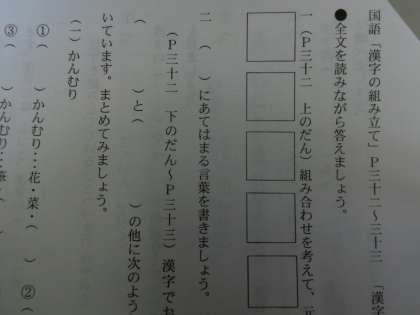 国語「漢字の組み立て」P三十二~三十三 「漢字
●全文を読みながら答えましょう。
一(P三十二 上のだん)組み合わせを考えて、
二( )にあてはまる言葉を書きましょう。
(P三十二 下のだん~P三十三)漢字でお
( )と( )の他に次のよう
いています。まとめてみましょう。
(一)かんむり
①( )かんむり…花・菜・( ) ②(
③( )かんむり…